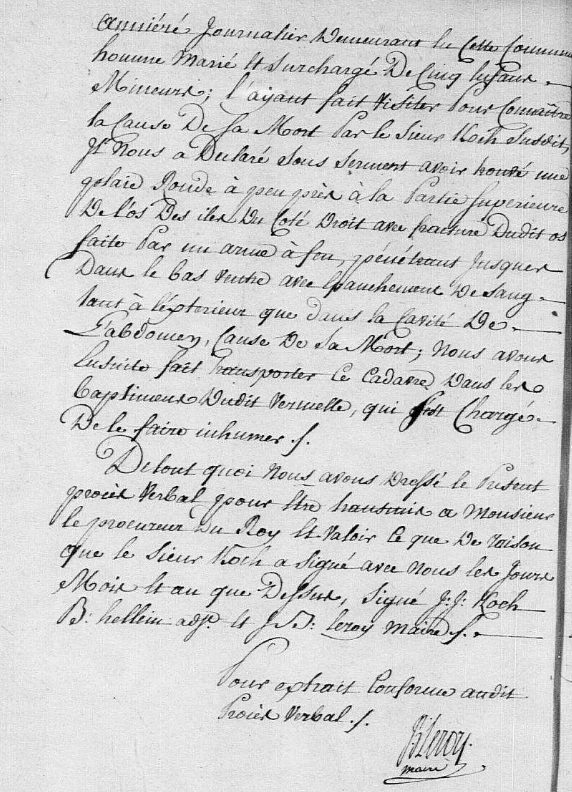 journalier Demeurant En Cette Commune
homme Marié Et Surchargé De Cinq Enfans
Mineurs; l'ayant fait Visiter Pour Connaître
la Cause De Sa Mort Par le Sieur Koch Susdit,
Il Nous a Declaré Sous Serment avoir trouvé une
plaie Ronde à peu près à la Partie Superieure
De l'os Des iles Du Coté Droit avec fracture Dudit os
faite Par un arme à feu, pénétrant Jusques
Dans le bas Ventre avec Epanchement De Sang
tant à l'éxterieur que dans la Cavité De
L'abdomen, Cause De Sa Mort; Nous avons
Ensuite fait transporter Ce Cadavre Dans les
Baptiments Dudit Vermelle, qui S'est Chargé
De le faire inhumer ./.
De tout quoi Nous avons Dressé le Présent
procès Verbal pour Etre transmis a Monsieur
le procureur Du Roy Et Valoir Ce que De raison
que le Sieur Koch a Signé avec Nous les Jours
Mois Et an que Dessus, Signé J: J: Koch
B: hellin adjt. Et J. B: leroy Maire ./.
Pour extrait Conforme audit
Procès Verbal ./.
JBleroy
maire